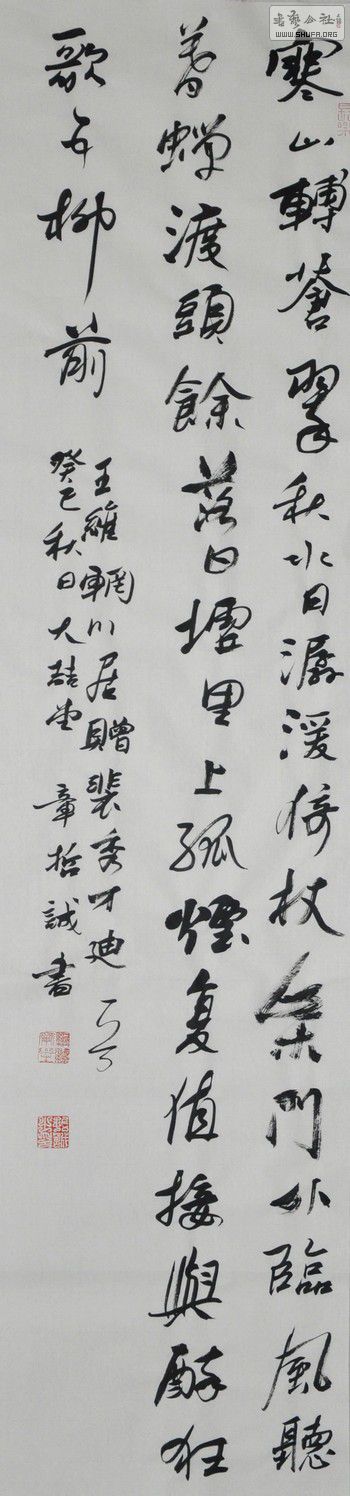 寒山轉蒼翠秋水日潺湲倚杖柴門外臨風聽
暮蟬渡頭餘落日墟里上孤煙复值接輿醉狂
歌五柳前
王維輞川居贈裴秀才迪一首
癸巳秋日大喆堂 章哲誠書
书艺公社
WWW.SHUFA.ORG